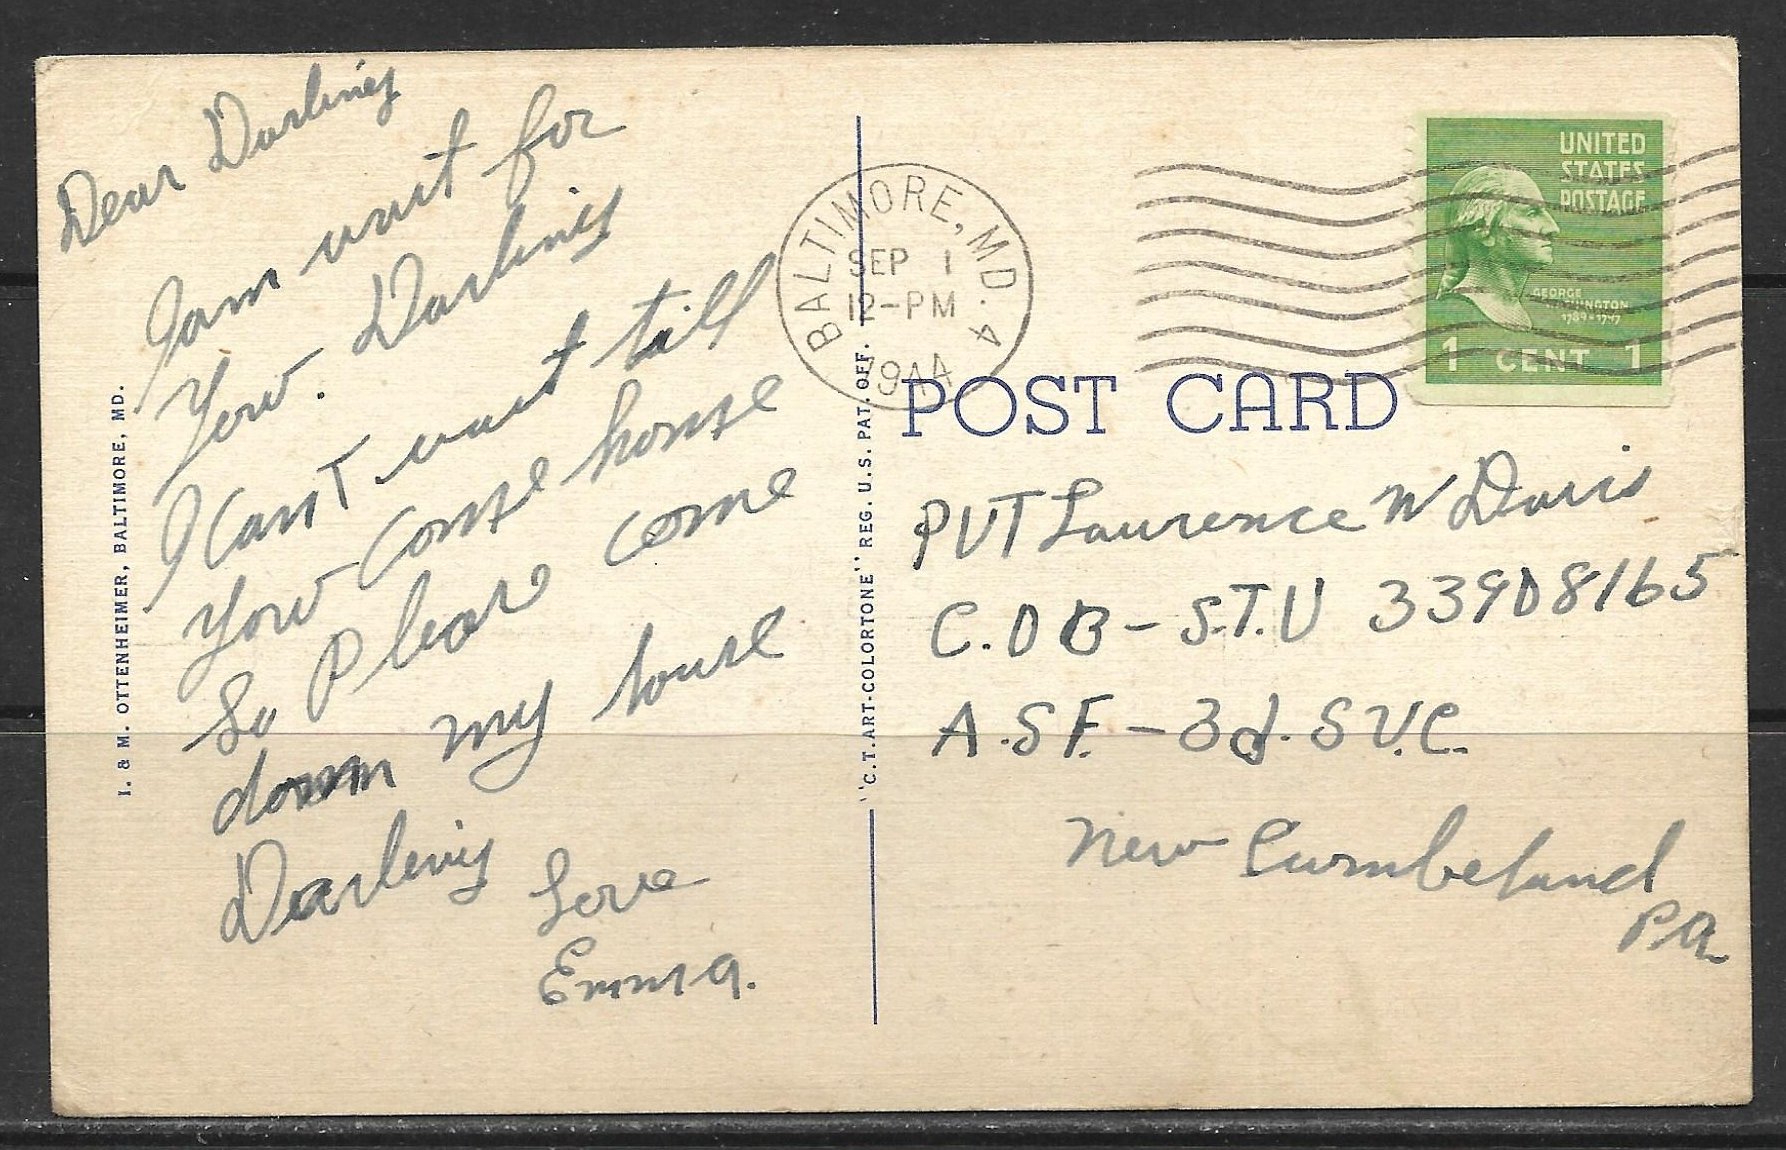 Dear Darling
I am wait for
You. Darling
I Can't wait till
You Come home
So Please come
down my house
Darling Love
Emma.
I. & M. OTTENHEIMER, BALTIMORE, MD.
"C.T. ART-COLORTONE" REG. U.S. PAT. OFF.
BALTIMORE, MD. 4
SEP 1
12-PM
1944
UNITED
STATES
POSTAGE
GEORGE
WASHINGTON
1789-1797
1 CENT 1
POST CARD
PVT Laurence W Davis
C.D B - S.T.U 33908165
A.S F. - 3d. S V.C.
New Cumbeland
PA